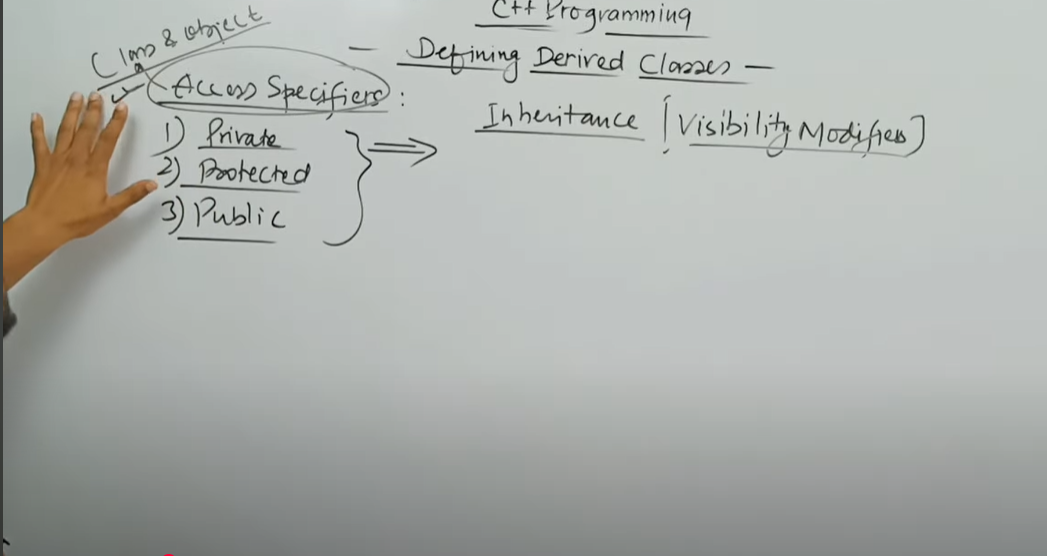 C++ Programming
— Defining Derived Classes —
Class & Object
Access Specifiers :
1) Private
2) Protected
3) Public
⇒
Inheritance [Visibility Modifiers]